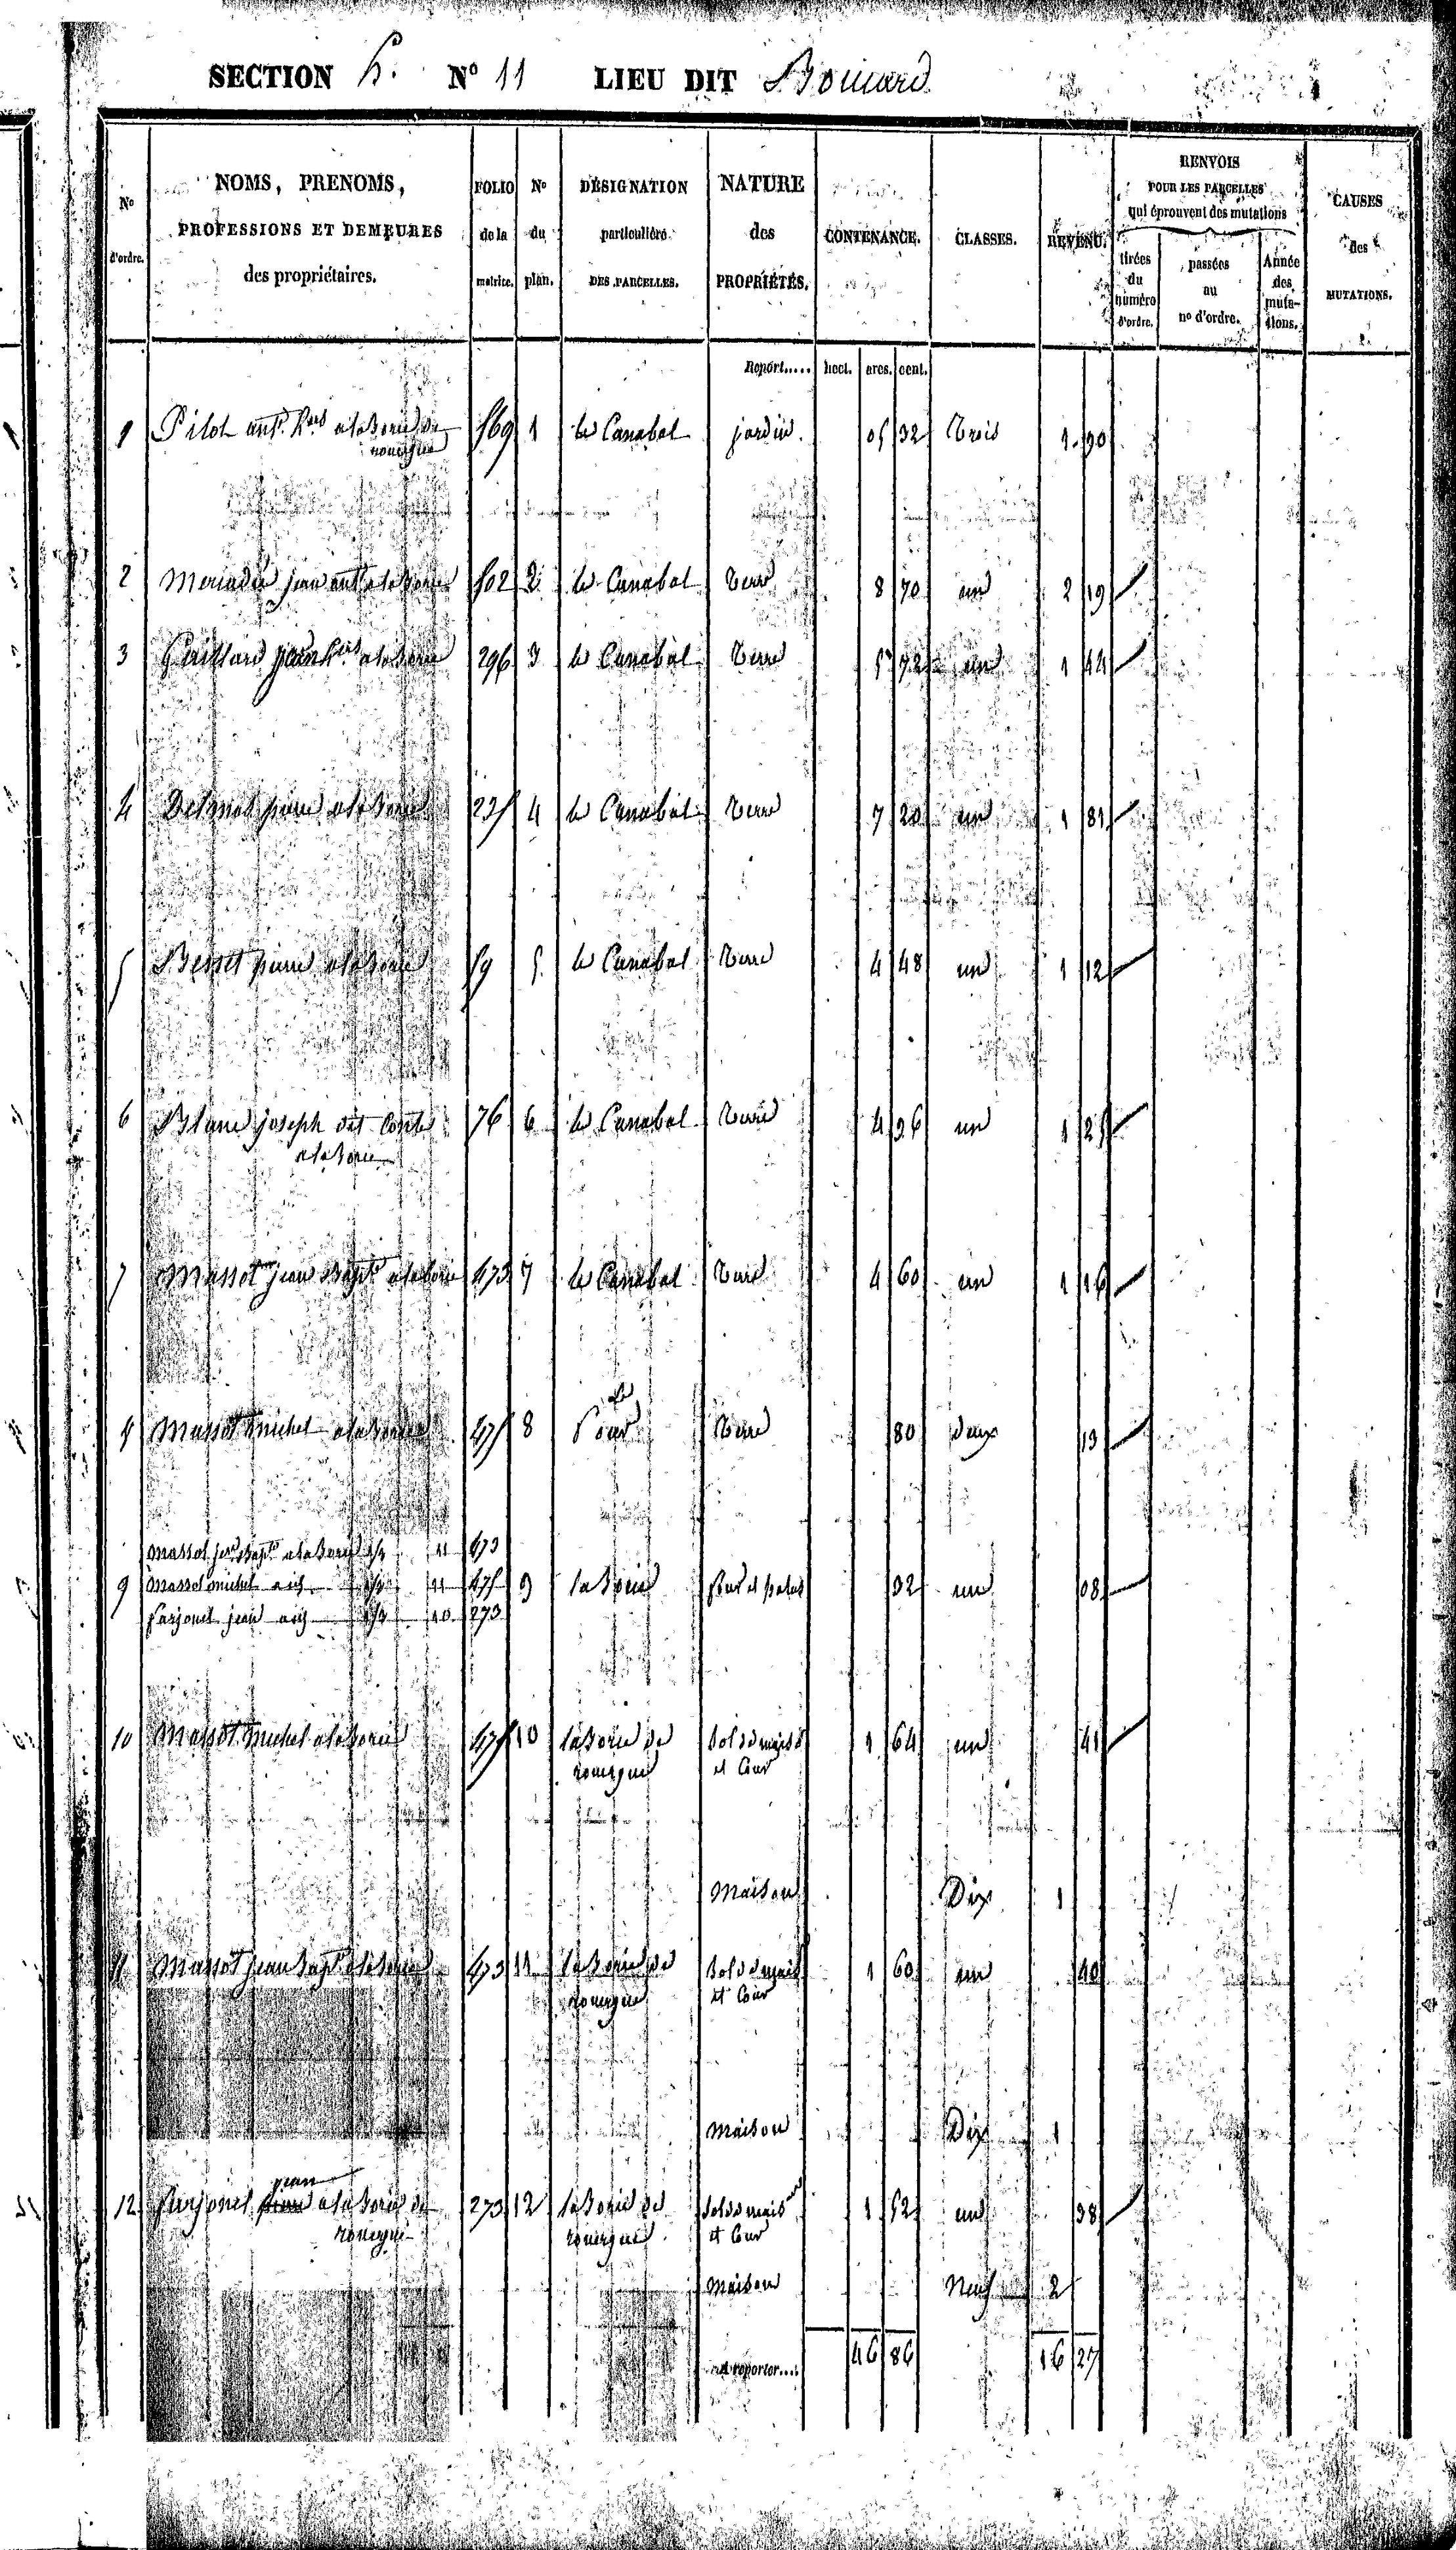 SECTION h. N° 11 LIEU DIT Bouiard
N° d'ordre. | NOMS, PRENOMS, PROFESSIONS ET DEMEURES des propriétaires. | FOLIO de la matrice. | N° du plan. | DÉSIGNATION particulière DES PARCELLES. | NATURE des PROPRIÉTÉS. | CONTENANCE. | CLASSES. | REVENU. | RENVOIS POUR LES PARCELLES qui éprouvent des mutations | CAUSES des MUTATIONS.
tirées du numéro d'ordre. | passées au n° d'ordre. | Année des mutations.
Report..... hect. ares. cent.
1 Pilot ant. hers a la Borie de 569 1 le Canabal jardin. 05 32 Trois 1 90
rouergue
2 jean ant a la Borie 502 2 le Canabal Terre 8 70 un 2 19
3 Gaillard jean hers a la Borie 296 3 le Canabal Terre 5 72 un 1 44
4 Delmot pierre a la Borie 235 4 le Canabal Terre 7 20 un 1 81
5 Besset pierre a la Borie 59 5 le Canabal Terre 4 48 un 1 12
6 Blanc joseph dit Conte 76 6 le Canabal Terre 4 96 un 1 25
a la Borie
7 Massot jean Bapte a la Borie 473 7 le Canabal Terre 4 60 un 1 16
8 Massot michel a la Borie 475 8 Le Four Terre 80 deux 13
Massot jean Bapte a la Borie 11 473
9 Massot michel 11 475 9 la Borie four et patus 32 un 08
Farjonel jean 10 273
10 Massot michel a la Borie 475 10 la Borie de sol de maison 1 64 un 41
rouergue et Cour
Maison Dix 1
11 Massot jean Bapt. a la Borie 473 11 la Borie de sol de maison 1 60 un 40
rouergue et Cour
Maison Dix 1
jean
12 Farjonel a la Borie de 273 12 la Borie de sol de maison 1 52 un 38
rouergue rouergue et Cour
Maison Neuf 2
A reporter.... 46 86 16 27